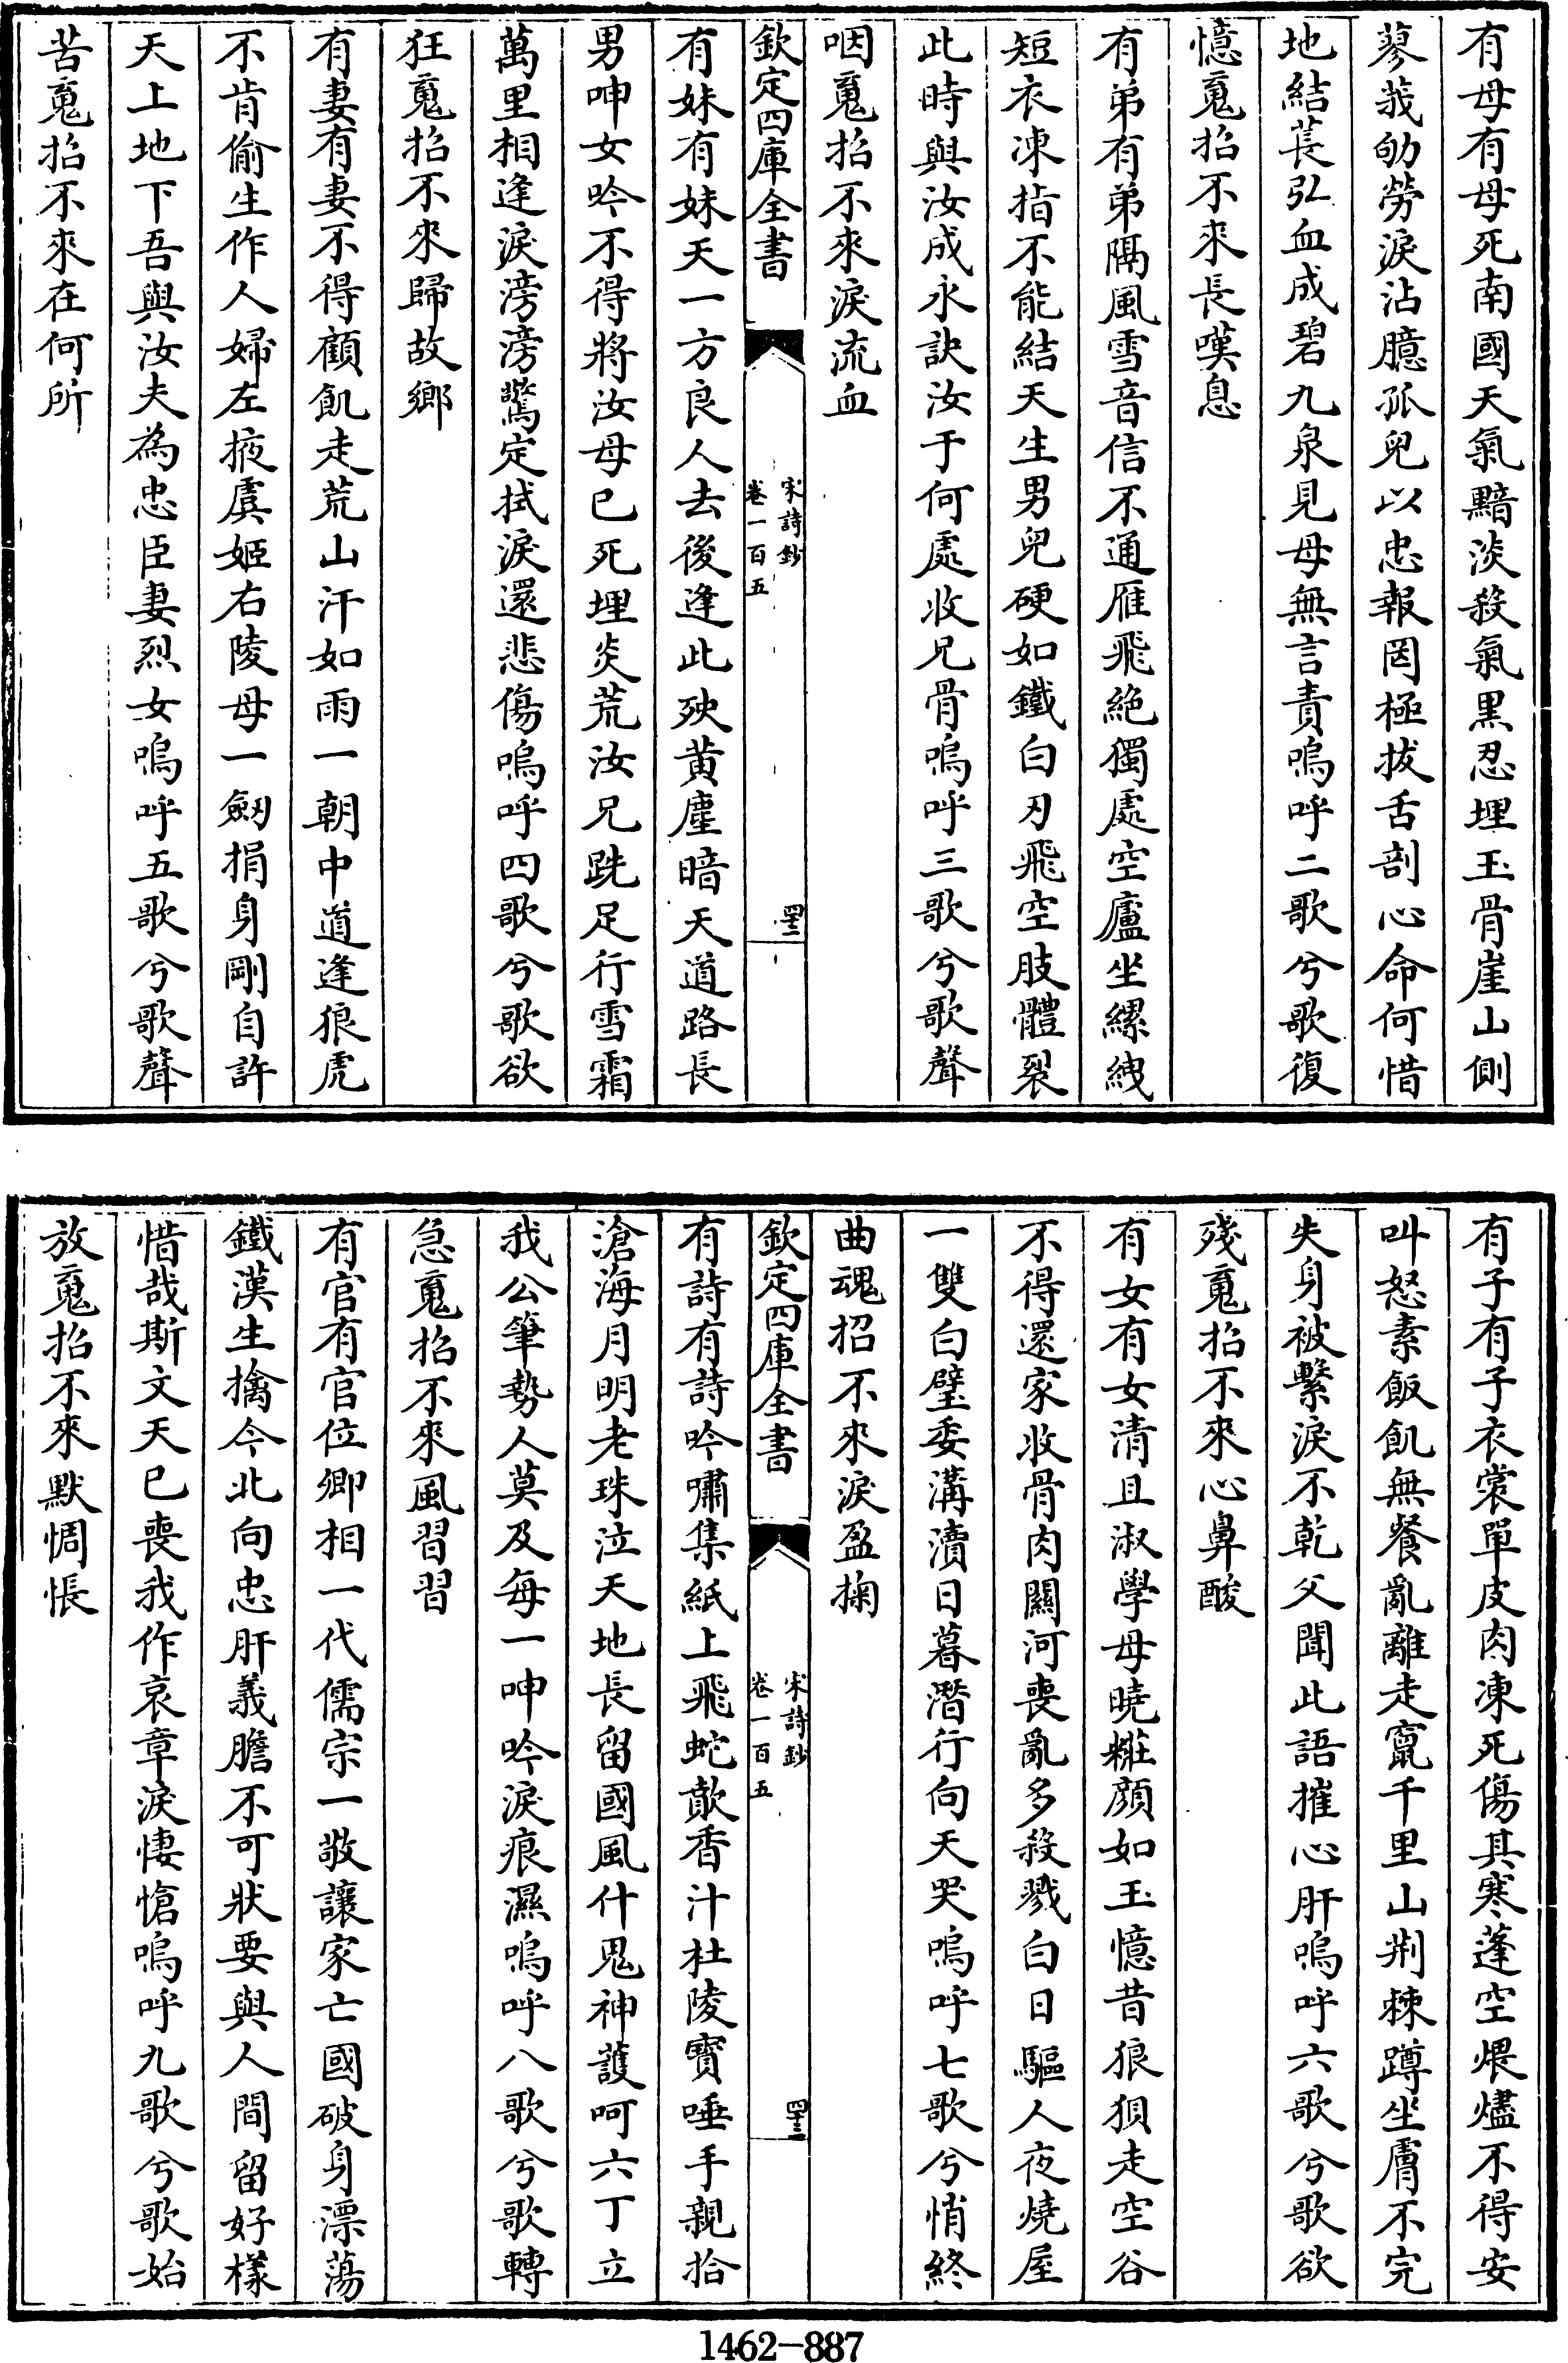 有母有母死南國天氣黯淡殺氣黒忍埋玉骨崖山側
蓼莪劬勞淚沾臆孤兒以忠報罔極拔舌剖心命何惜
地結萇弘血成碧九泉見母無言責嗚呼二歌兮歌復
憶䰟招不來長嘆息
有弟有弟隔風雪音信不通雁飛絶獨處空廬坐縲絏
短衣凍指不能結天生男兒硬如鐵白刃飛空肢體裂
此時與汝成永訣汝于何處收兄骨嗚呼三歌兮歌聲
咽䰟招不來淚流血
欽定四庫全書
宋詩鈔
卷一百五
四十二
有妹有妹天一方良人去後逢此殃黄塵暗天道路長
男呻女吟不得將汝母已死埋炎荒汝兄跣足行雪霜
萬里相逢淚滂滂驚定拭淚還悲傷嗚呼四歌兮歌欲
狂䰟招不來歸故鄉
有妻有妻不得顧飢走荒山汗如雨一朝中道逢狼虎
不肯偷生作人婦左掖虞姬右陵母一劒捐身剛自許
天上地下吾與汝夫為忠臣妻烈女嗚呼五歌兮歌聲
苦䰟招不來在何所
有子有子衣裳單皮肉凍死傷其寒蓬空煨燼不得安
叫怒索飯飢無餐亂離走竄千里山荆棘蹲坐膚不完
失身被繫淚不乾父聞此語摧心肝嗚呼六歌兮歌欲
殘䰟招不來心鼻酸
有女有女清且淑學母曉粧顔如玉憶昔狼狽走空谷
不得還家收骨肉關河喪亂多殺戮白日驅人夜燒屋
一雙白璧委溝瀆日暮潛行向天哭嗚呼七歌兮悄終
曲魂招不來淚盈掬
欽定四庫全書
宋詩鈔
卷一百五
四十三
有詩有詩吟嘯集紙上飛蛇歕香汁杜陵寳唾手親拾
滄海月明老珠泣天地長留國風什鬼神護呵六丁立
我公筆勢人莫及每一呻吟淚痕濕嗚呼八歌兮歌轉
急䰟招不來風習習
有官有官位卿相一代儒宗一敬讓家亡國破身漂蕩
鐵漢生擒今北向忠肝義膽不可狀要與人間留好様
惜哉斯文天已喪我作哀章淚悽愴嗚呼九歌兮歌始
放䰟招不來默惆悵
1462-887